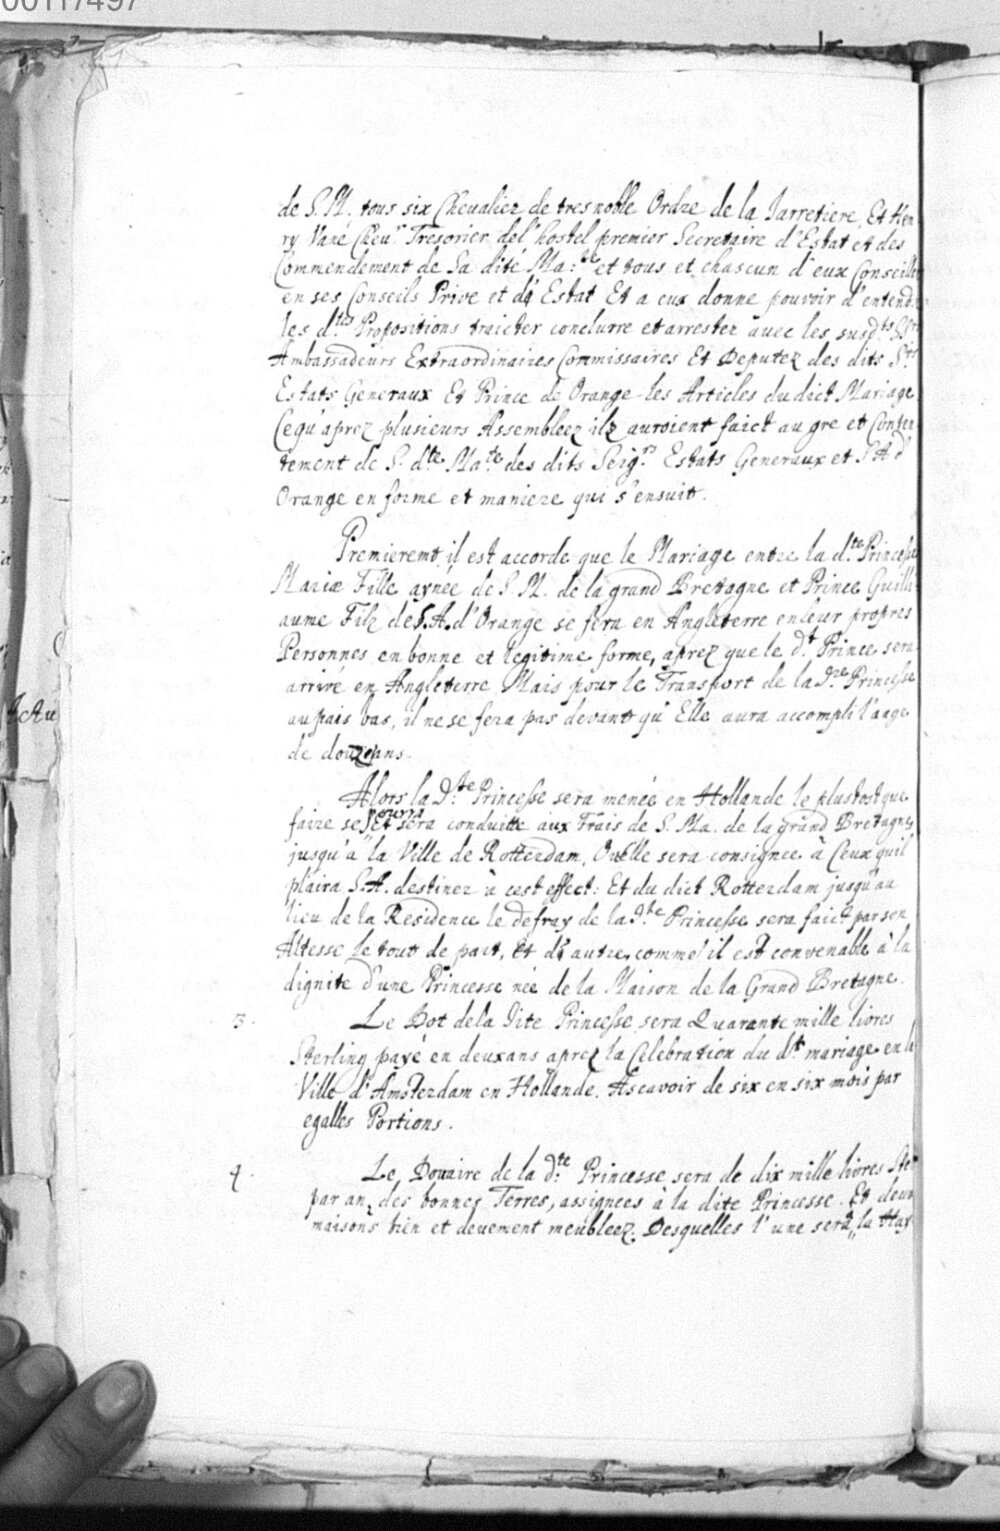 00117497
de S. M. tous six Chevaliez de tres noble Ordre de la Jarretiere, Et Hen
ry Vane Cheu.r Tresorier del'hostel premier Secretaire d'Estat et des
Commendement de Sa dite Ma:te et tous et chascun d'eux Conseill
en ses Conseils Prive et d' Estat Et a eux donne pouvoir d'entend
les d.tes Propositions traicter conclurre et arrester avec les susd.ts S.rs
Ambassadeurs Extraordinaires Commissaires Et Deputez des dits S.rs
Estats Generaux Et Prince de Orange les Articles du dict Mariage
Cequ'aprez plusieurs Assembleez ilz auroient faict au gre et Conten
tement de S. d.te Ma.te des dits Seig.rs Estats Generaux et S A d
Orange en forme et maniere qui s'ensuit.
Premieremt, il est accorde que le Mariage entre la d.te Princesse
Mariæ Fille aynee de S. M. de la grand Bretagne et Prince Guill
aume Filz de S. A. d'Orange se fera en Angleterre en leur propres
Personnes en bonne et legitime forme, aprez que le d.t Prince sera
arrivé en Angleterre Mais pour le Transport de la d.te Princesse
au pais bas, il ne se fera pas devant qu'Elle aura accompli l'aage
de douze ans.
Alors la d.te Princesse sera menée en Hollande le plustost que
faire se pourra Et sera conduitte aux Frais de S. Ma. de la grand Bretagne
jusqu'a la Ville de Rotterdam, Ou elle sera consignee à Ceux quil
plaira S. A. destinez à cest effect: Et du dict Rotterdam jusqu'au
lieu de la Residence le defray de la d.te Princesse sera faict par son
Altesse le tout de part, Et d' autre, comme il est convenable à la
dignite d'une Princesse née de la Maison de la Grand Bretagne.
3. Le Dot dela dite Princesse sera Quarante mille livres
Sterling payé en deux ans aprez la Celebration du d.t mariage en la
Ville d'Amsterdam en Hollande. Ascavoir de six en six mois par
egalles Portions.
4. Le Douaire de la d.te Princesse sera de dix mille livres Ste
par an, des bonnes Terres, assignees à la dite Princesse. Et deux
maisons bien et deuement meubleez. Desquelles l'une sera à la Hay